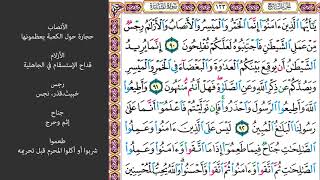 يَٰٓأَيُّهَا ٱلَّذِينَ ءَامَنُوٓا۟ إِنَّمَا ٱلْخَمْرُ وَٱلْمَيْسِرُ وَٱلْأَنصَابُ وَٱلْأَزْلَٰمُ رِجْسٌ
مِّنْ عَمَلِ ٱلشَّيْطَٰنِ فَٱجْتَنِبُوهُ لَعَلَّكُمْ تُفْلِحُونَ ٩٠ إِنَّمَا يُرِيدُ
ٱلشَّيْطَٰنُ أَن يُوقِعَ بَيْنَكُمُ ٱلْعَدَٰوَةَ وَٱلْبَغْضَآءَ فِى ٱلْخَمْرِ وَٱلْمَيْسِرِ
وَيَصُدَّكُمْ عَن ذِكْرِ ٱللَّهِ وَعَنِ ٱلصَّلَوٰةِ فَهَلْ أَنتُم مُّنتَهُونَ ٩١ وَأَطِيعُوا۟
ٱللَّهَ وَأَطِيعُوا۟ ٱلرَّسُولَ وَٱحْذَرُوا۟ فَإِن تَوَلَّيْتُمْ فَٱعْلَمُوٓا۟ أَنَّمَا عَلَىٰ
رَسُولِنَا ٱلْبَلَٰغُ ٱلْمُبِينُ ٩٢ لَيْسَ عَلَى ٱلَّذِينَ ءَامَنُوا۟ وَعَمِلُوا۟
ٱلصَّٰلِحَٰتِ جُنَاحٌ فِيمَا طَعِمُوٓا۟ إِذَا مَا ٱتَّقَوا۟ وَّءَامَنُوا۟ وَعَمِلُوا۟
ٱلصَّٰلِحَٰتِ ثُمَّ ٱتَّقَوا۟ وَّءَامَنُوا۟ ثُمَّ ٱتَّقَوا۟ وَّأَحْسَنُوا۟ وَٱللَّهُ يُحِبُّ ٱلْمُحْسِنِينَ
الأنصاب
حجارة حول الكعبة يعظمونها
الأزلام
قداح الإستقسام في الجاهلية
رجس
خبيث،قذر، نجس
جناح
إثم وحرج
طعموا
شربوا أو أكلوا المحرم قبل تحريمه